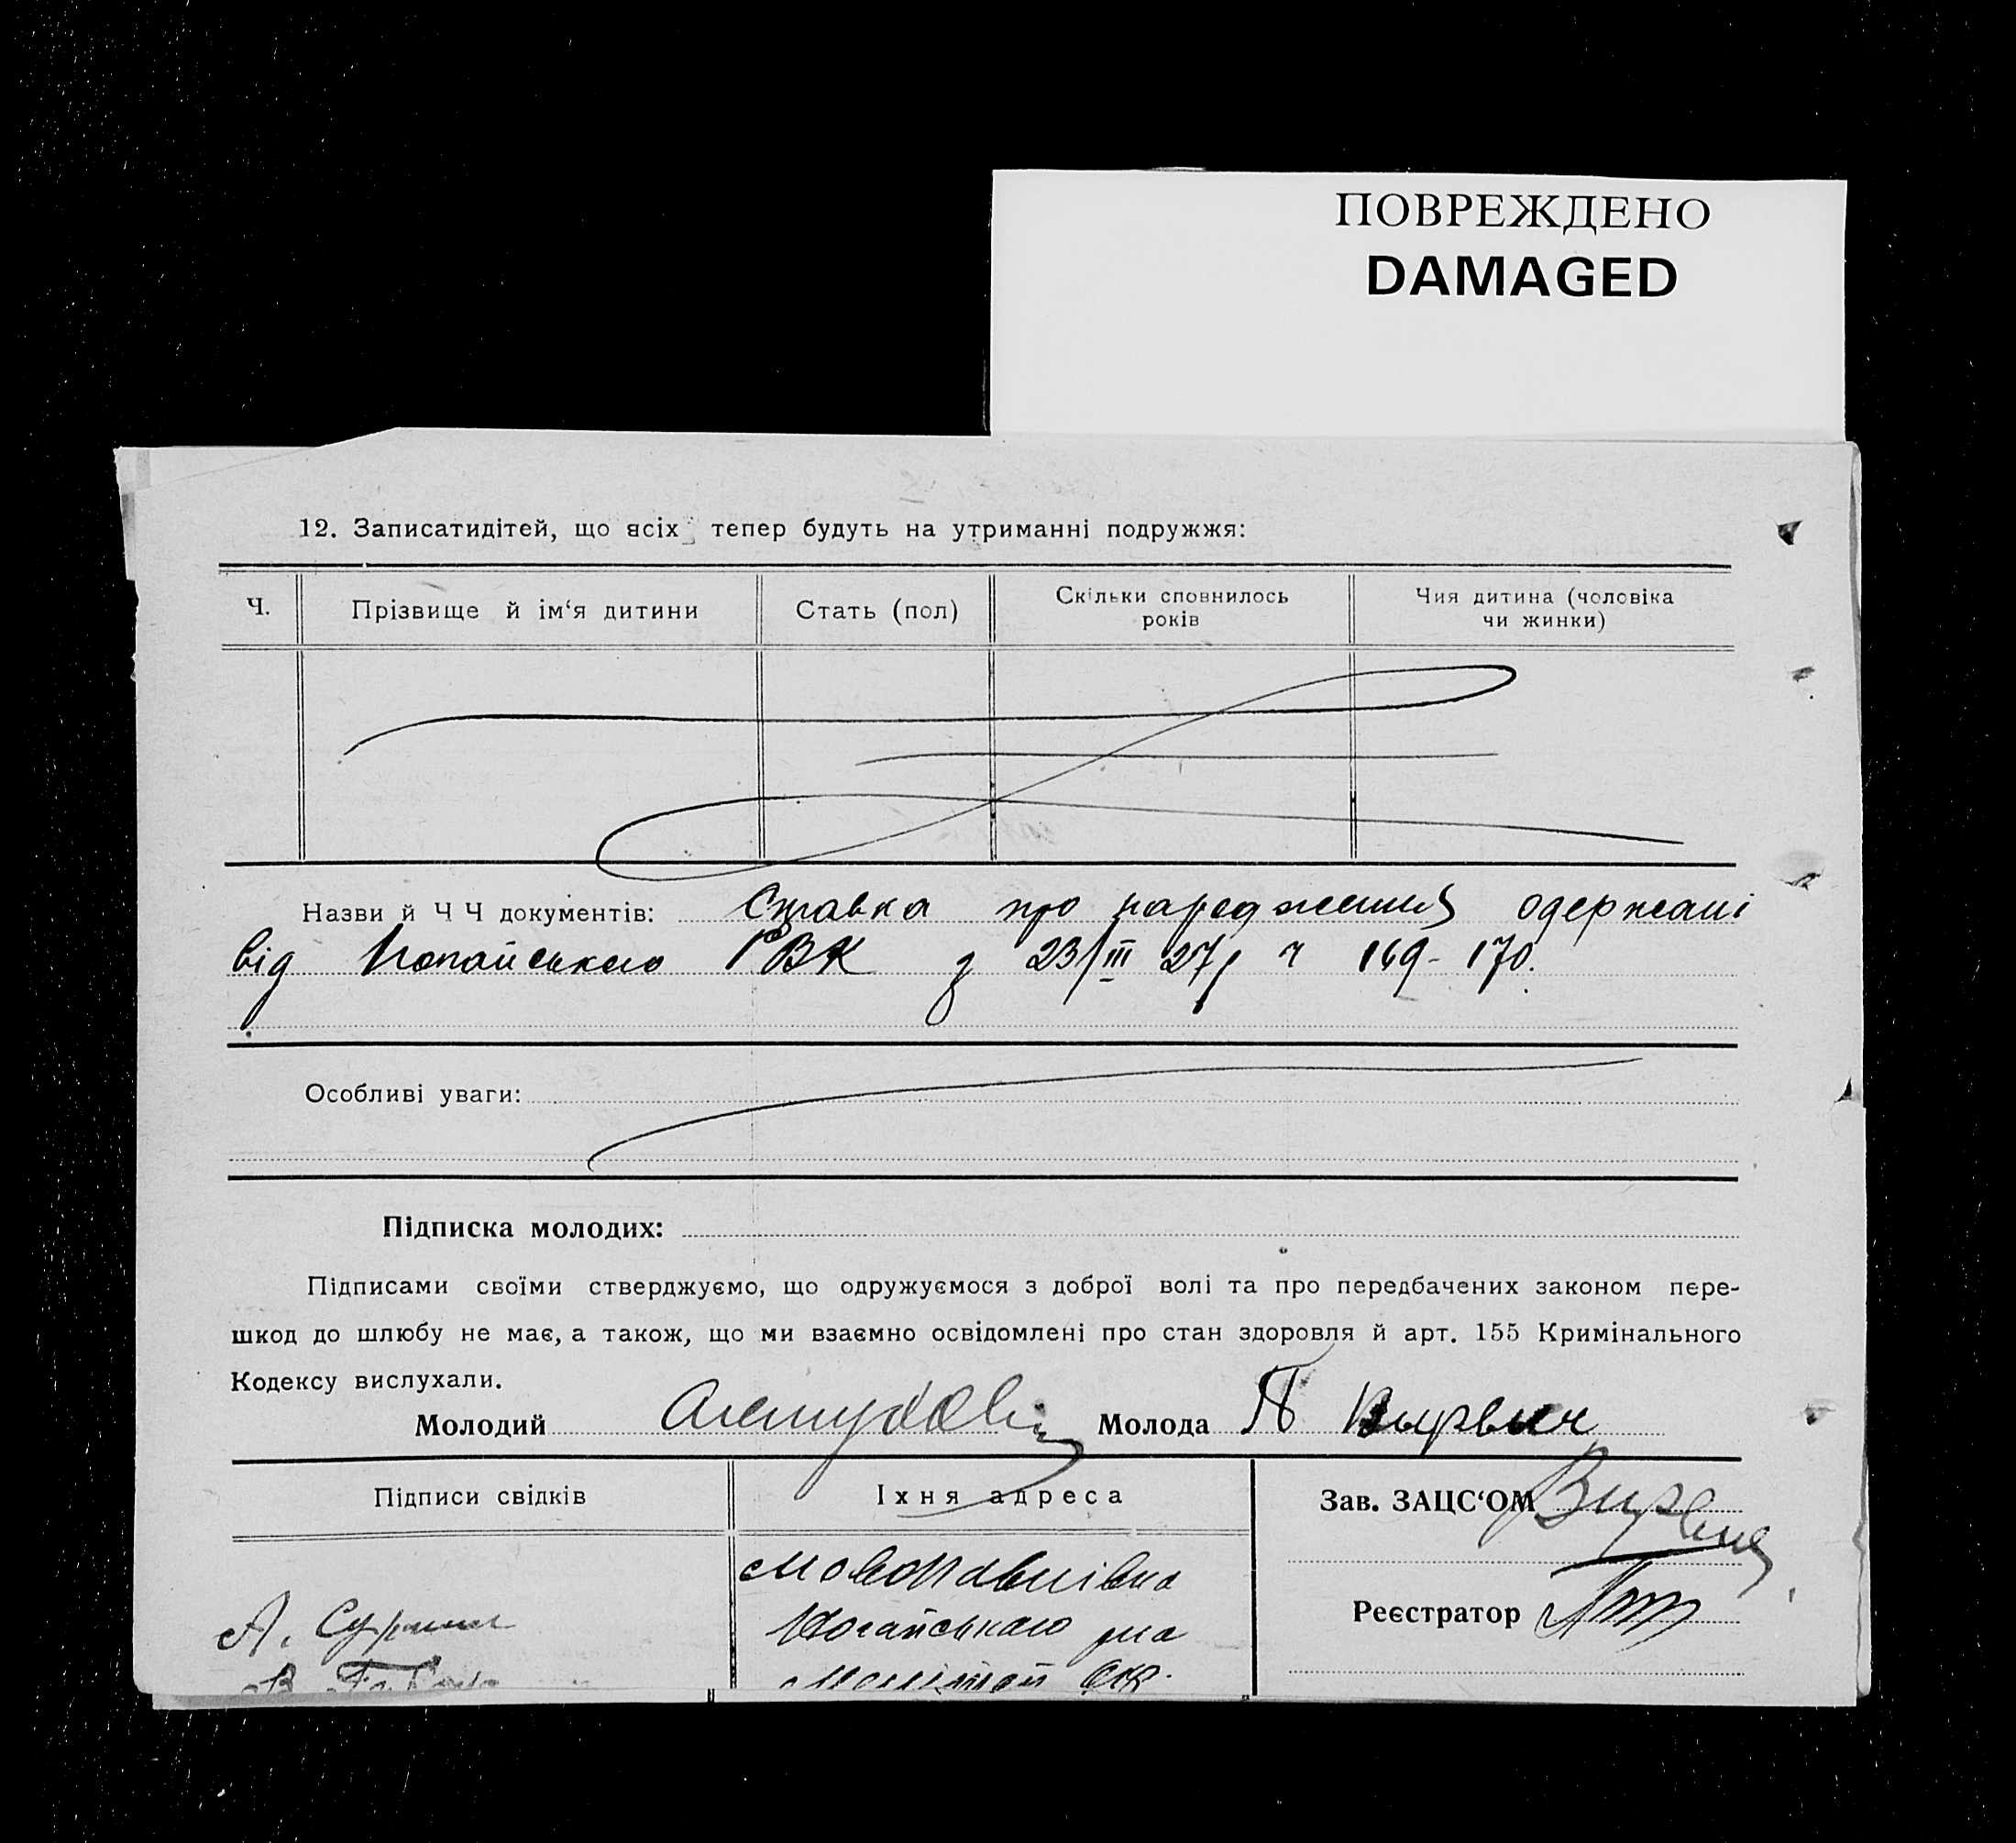 ПОВРЕЖДЕНО
DAMAGED
12. Записатидітей, що всіх тепер будуть на утриманні подружжя:
Ч.
Прізвище й ім‘я дитини
Стать (пол)
Скільки сповнилось
років
Чия дитина (чоловіка
чи жинки)
Назви й Ч Ч документів: Справка про народження одержані
від РВК з 23/III 27р ч 169-170.
Особливі уваги:
Підписка молодих:
Підписами своїми стверджуємо, що одружуємося з доброї волі та про передбачених законом пере-
шкод до шлюбу не має, а також, що ми взаємно освідомлені про стан здоровля й арт. 155 Кримінального
Кодексу вислухали.
Молодий
Молода
Підписи свідків
Їхня адреса
Зав. ЗАЦС‘ОМ
Новопавлівка
Ногайського р-на
Меліт. окр.
А.
В.
Реєстратор